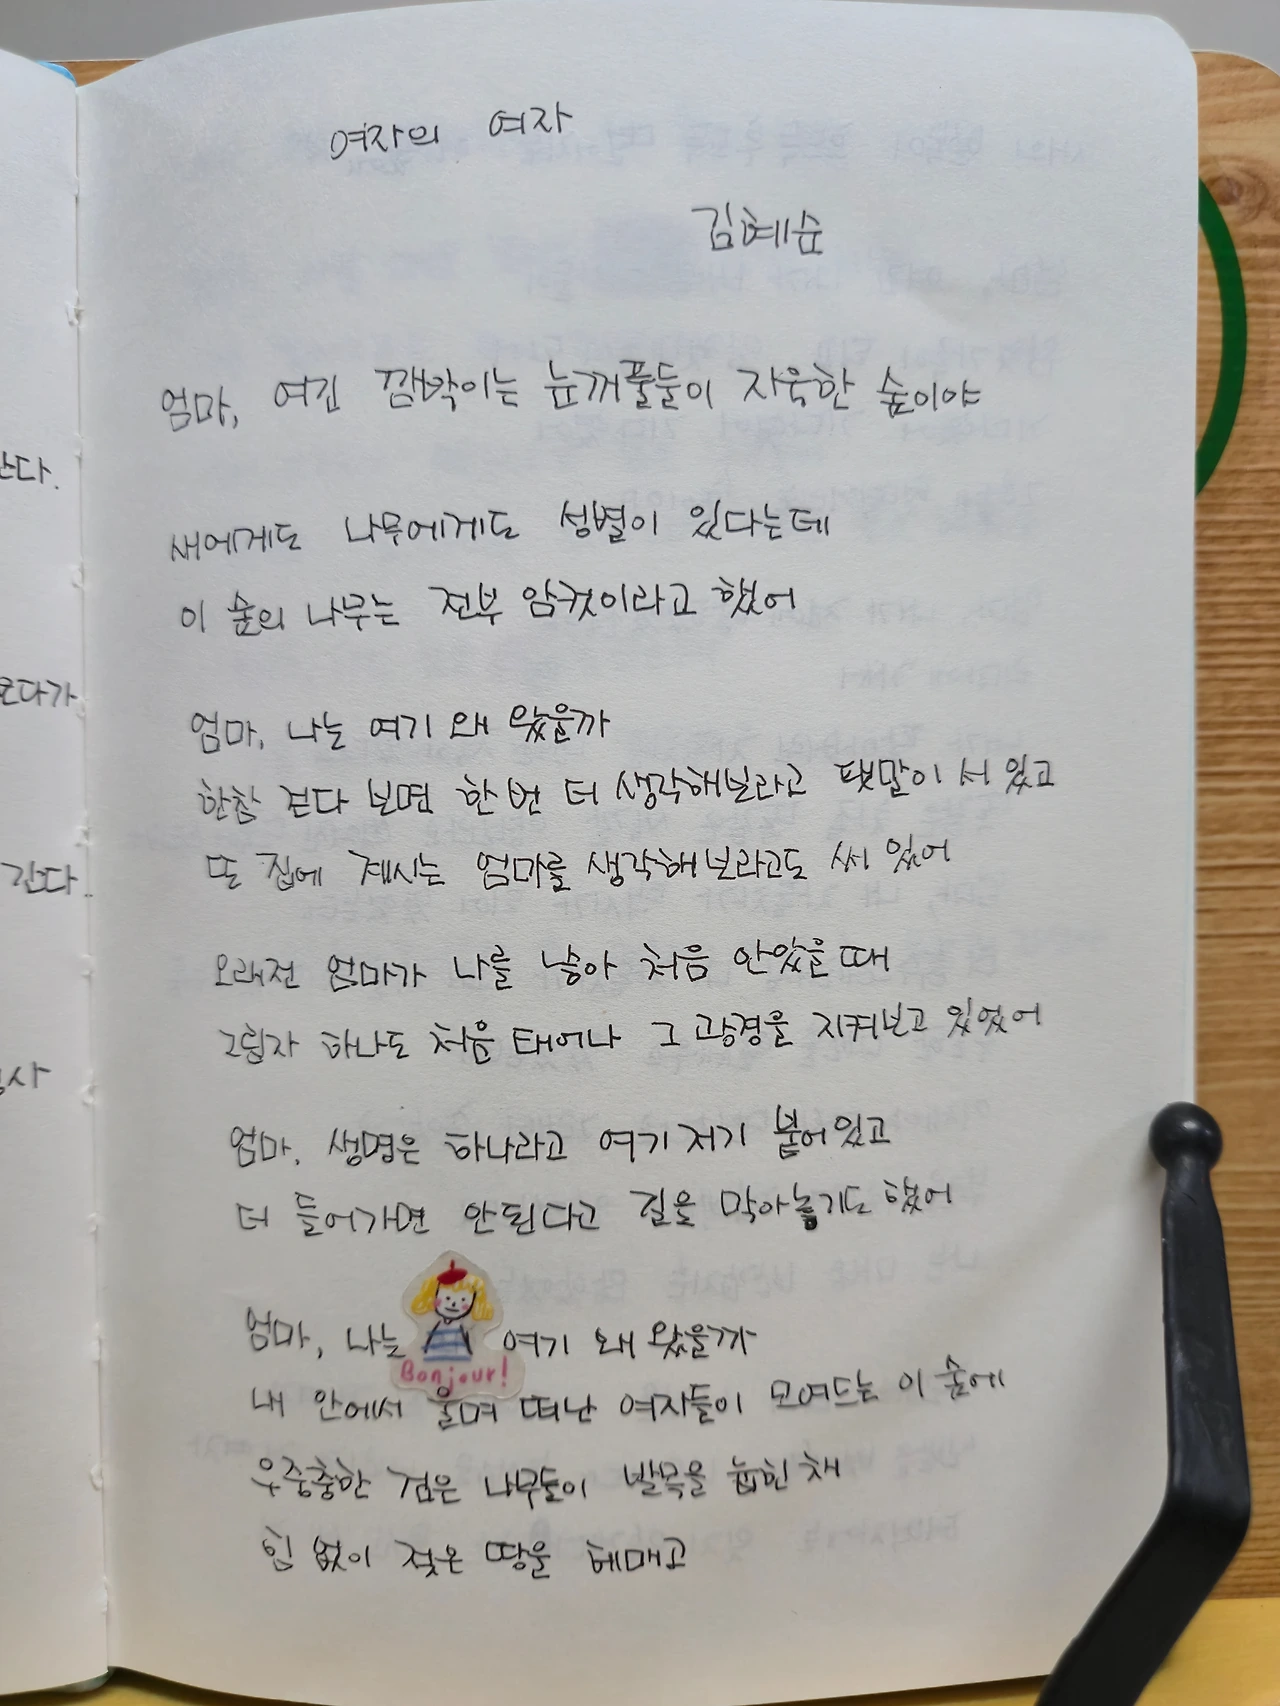 여자의 여자
김혜순
엄마, 여긴 깜박이는 눈꺼풀들이 자욱한 숲이야
새에게도 나무에게도 성별이 있다는데
이 숲의 나무는 전부 암컷이라고 했어
엄마, 나는 여기 왜 왔을까
한참 걷다 보면 한 번 더 생각해보라고 팻말이 서 있고
또 집에 계시는 엄마를 생각해보라고도 써 있어
오래전 엄마가 나를 낳아 처음 안았을 때
그림자 하나도 처음 태어나 그 광경을 지켜보고 있었어
엄마, 생명은 하나라고 여기저기 붙어있고
더 들어가면 안된다고 길을 막아놓기도 했어
엄마, 나는 여기 왜 왔을까
Bonjour!
내 안에서 울며 떠난 여자들이 모여드는 이 숲에
우중충한 검은 나무들이 발목을 눕힌 채
힘 없이 젖은 땅을 헤매고
란다.
온다가
간다.